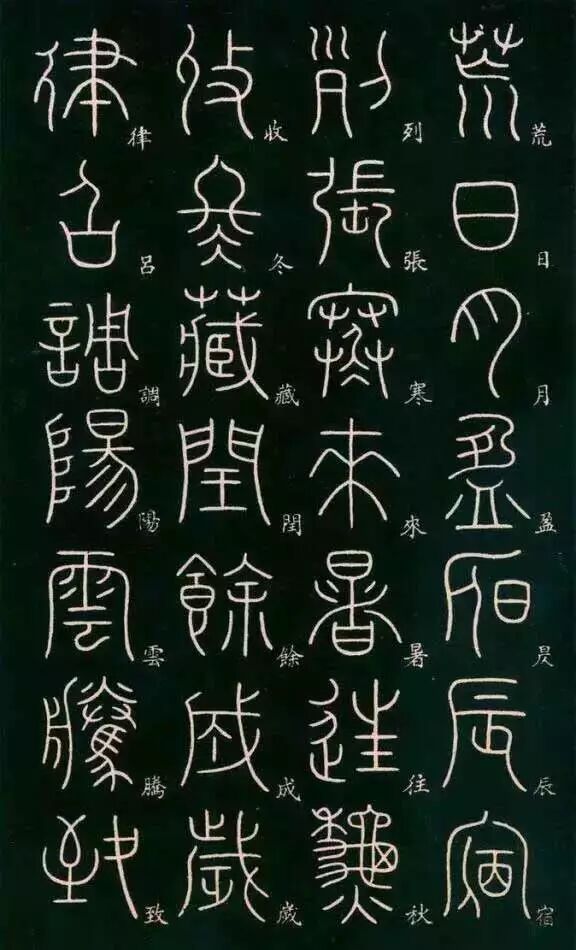 荒日月盈昃辰宿
列張寒來暑往秋
收冬藏閏餘成歲
律呂調陽雲騰致